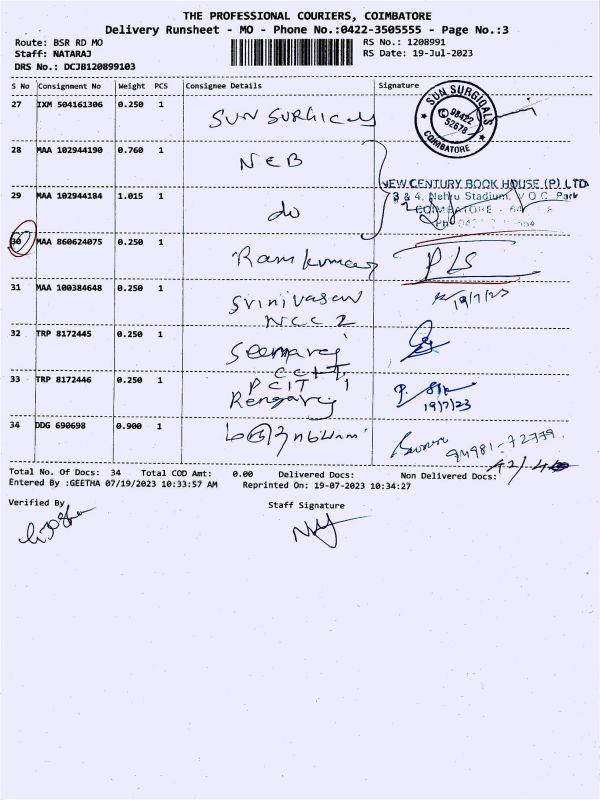 THE PROFESSIONAL COURIERS, COIMBATORE
Delivery Runsheet - MO - Phone No.:0422-3505555 - Page No.:3
Route: BSR RD MO
RS No.: 1208991
Staff: NATARAJ
RS Date: 19-Jul-2023
DRS No.: DCJB120899103
S No Consignment No Weight PCS Consignee Details Signature
27 IXM 504161306 0.250 1 SUN SURGICALS
SUN SURGICALS
98422
52678
COIMBATORE
28 MAA 102944190 0.760 1 NCB
NEW CENTURY BOOK HOUSE (P) LTD
29 MAA 102944184 1.015 1 do
3 & 4, Nehru Stadium, V.O.C. Park
COIMBATORE
30 MAA 860624075 0.250 1 Ramkumar PLS
31 MAA 100384648 0.250 1 Srinivasan
19/7/23
NCC 2
32 TRP 8172445 0.250 1 Seemaraj
CCIT
33 TRP 8172446 0.250 1 PCIT 1
Rengaraj
19/7/23
34 DDG 690698 0.900 1
94981-72779
Total No. Of Docs: 34 Total COD Amt: 0.00 Delivered Docs: Non Delivered Docs:
Entered By :GEETHA 07/19/2023 10:33:57 AM Reprinted On: 19-07-2023 10:34:27
Verified By Staff Signature